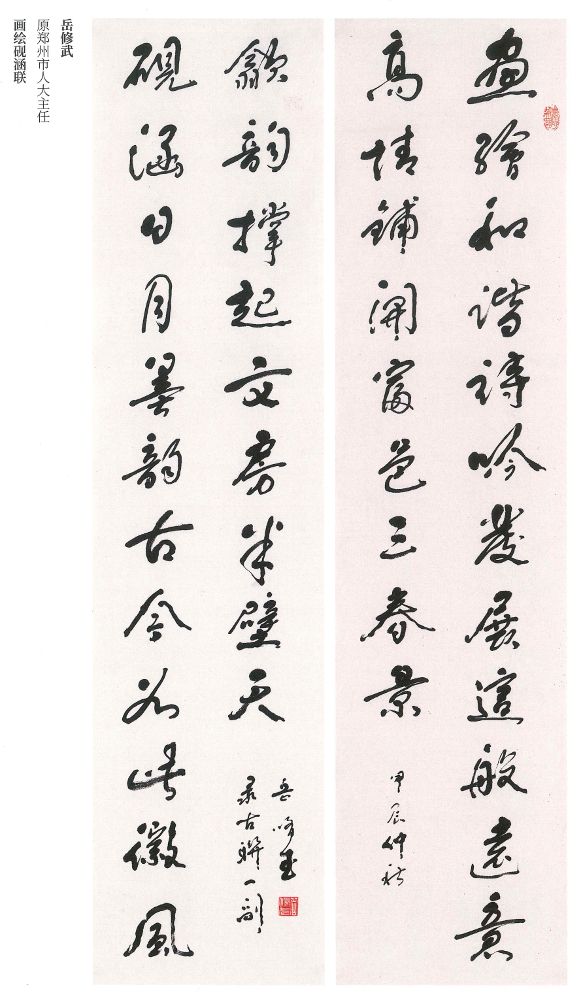 畫繪和諧詩吟發展這般遠意
高情鋪開富邑三春景
甲辰仲秋
硯涵日月墨韵古今如此徽風
歙韵撑起文房半壁天
岳修武
录古聯一副
岳修武
原郑州市人大主任
画绘砚涵联